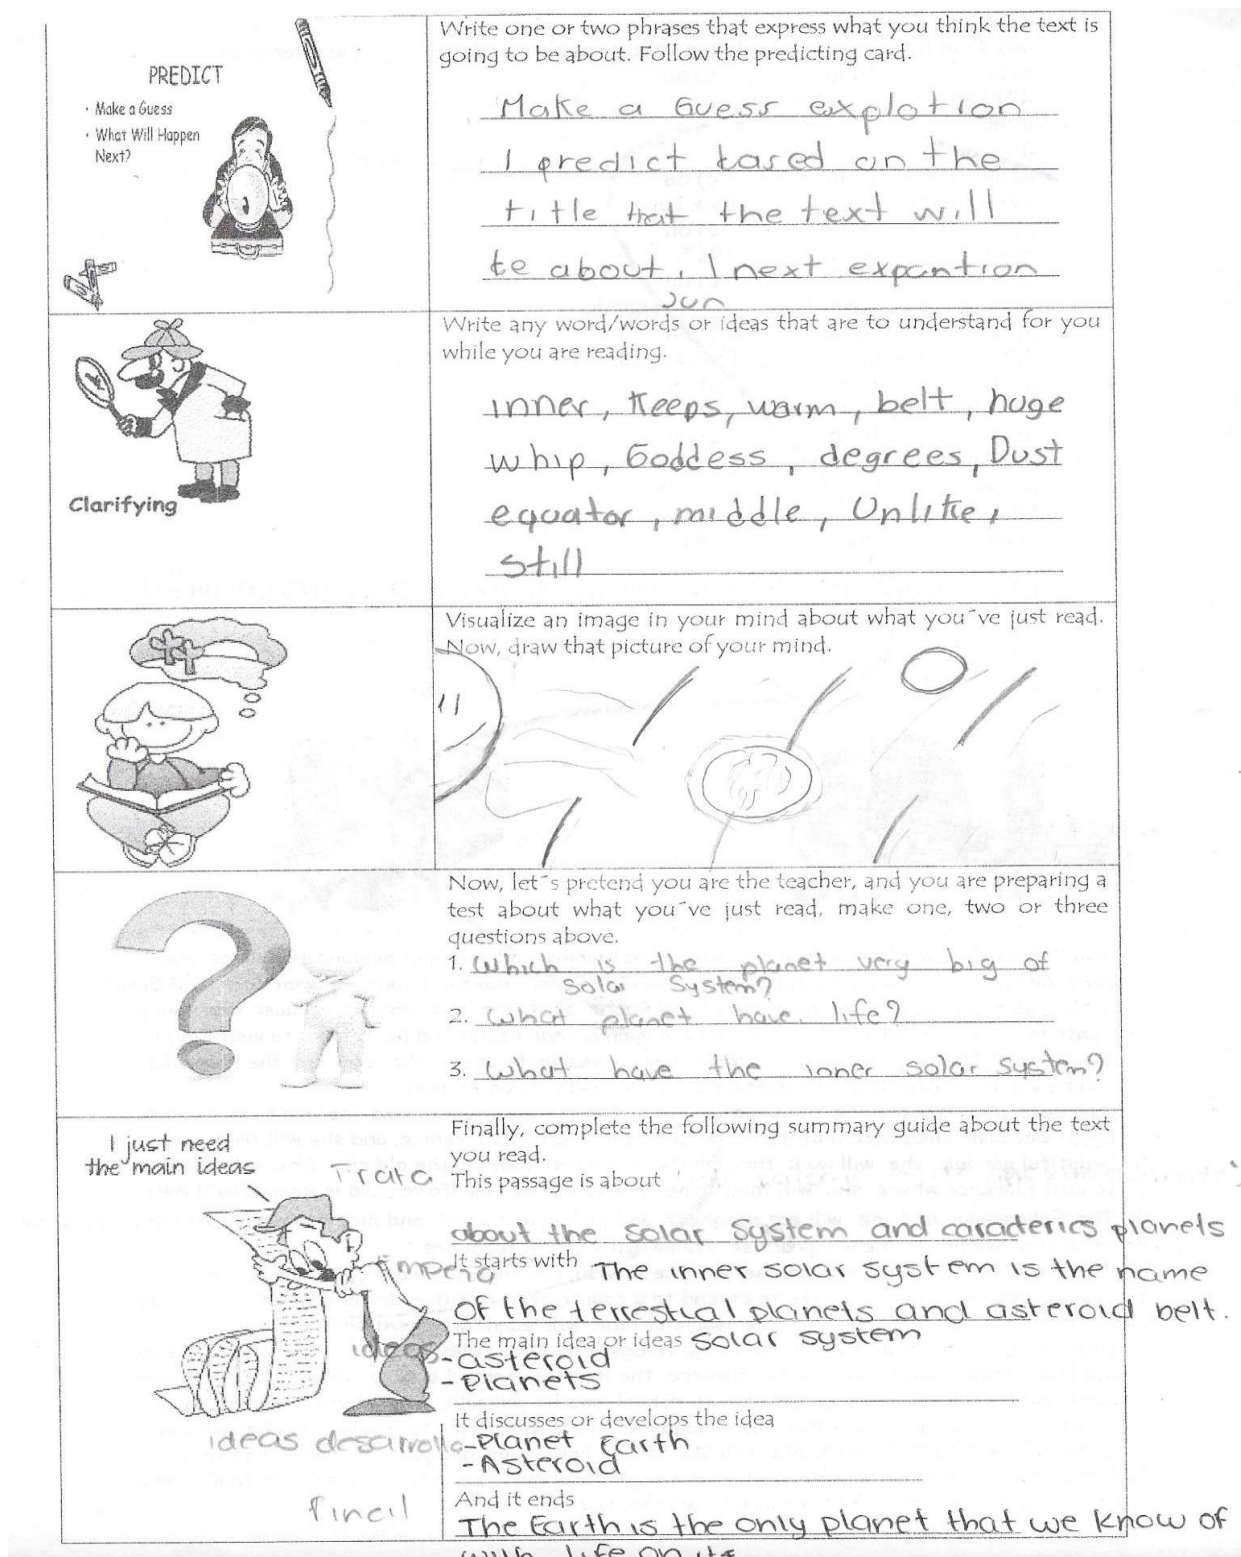 PREDICT
· Make a Guess
· What Will Happen
Next?
Write one or two phrases that express what you think the text is
going to be about. Follow the predicting card.
Make a Guess explotion
I predict based on the
title that the text will
be about, I next expantion
sun
Clarifying
Write any word/words or ideas that are to understand for you
while you are reading.
inner, Keeps, warm, belt, huge
whip, Goddess, degrees, Dust
equator, middle, Unlike,
still
Visualize an image in your mind about what you´ve just read.
Now, draw that picture of your mind.
Now, let´s pretend you are the teacher, and you are preparing a
test about what you´ve just read, make one, two or three
questions above.
1. Which is the planet very big of
Solar System?
2. What planet have life?
3. What have the inner solar system?
I just need
the main ideas
Finally, complete the following summary guide about the text
you read.
Trata
This passage is about
about the solar system and caracterics planets
Empera
It starts with The inner solar system is the name
of the terrestial planets and asteroid belt.
The main idea or ideas solar system
ideas -asteroid
-Planets
It discusses or develops the idea
ideas desarrollo -Planet Earth
-Asteroid
And it ends
The Earth is the only planet that we know of
with life on its